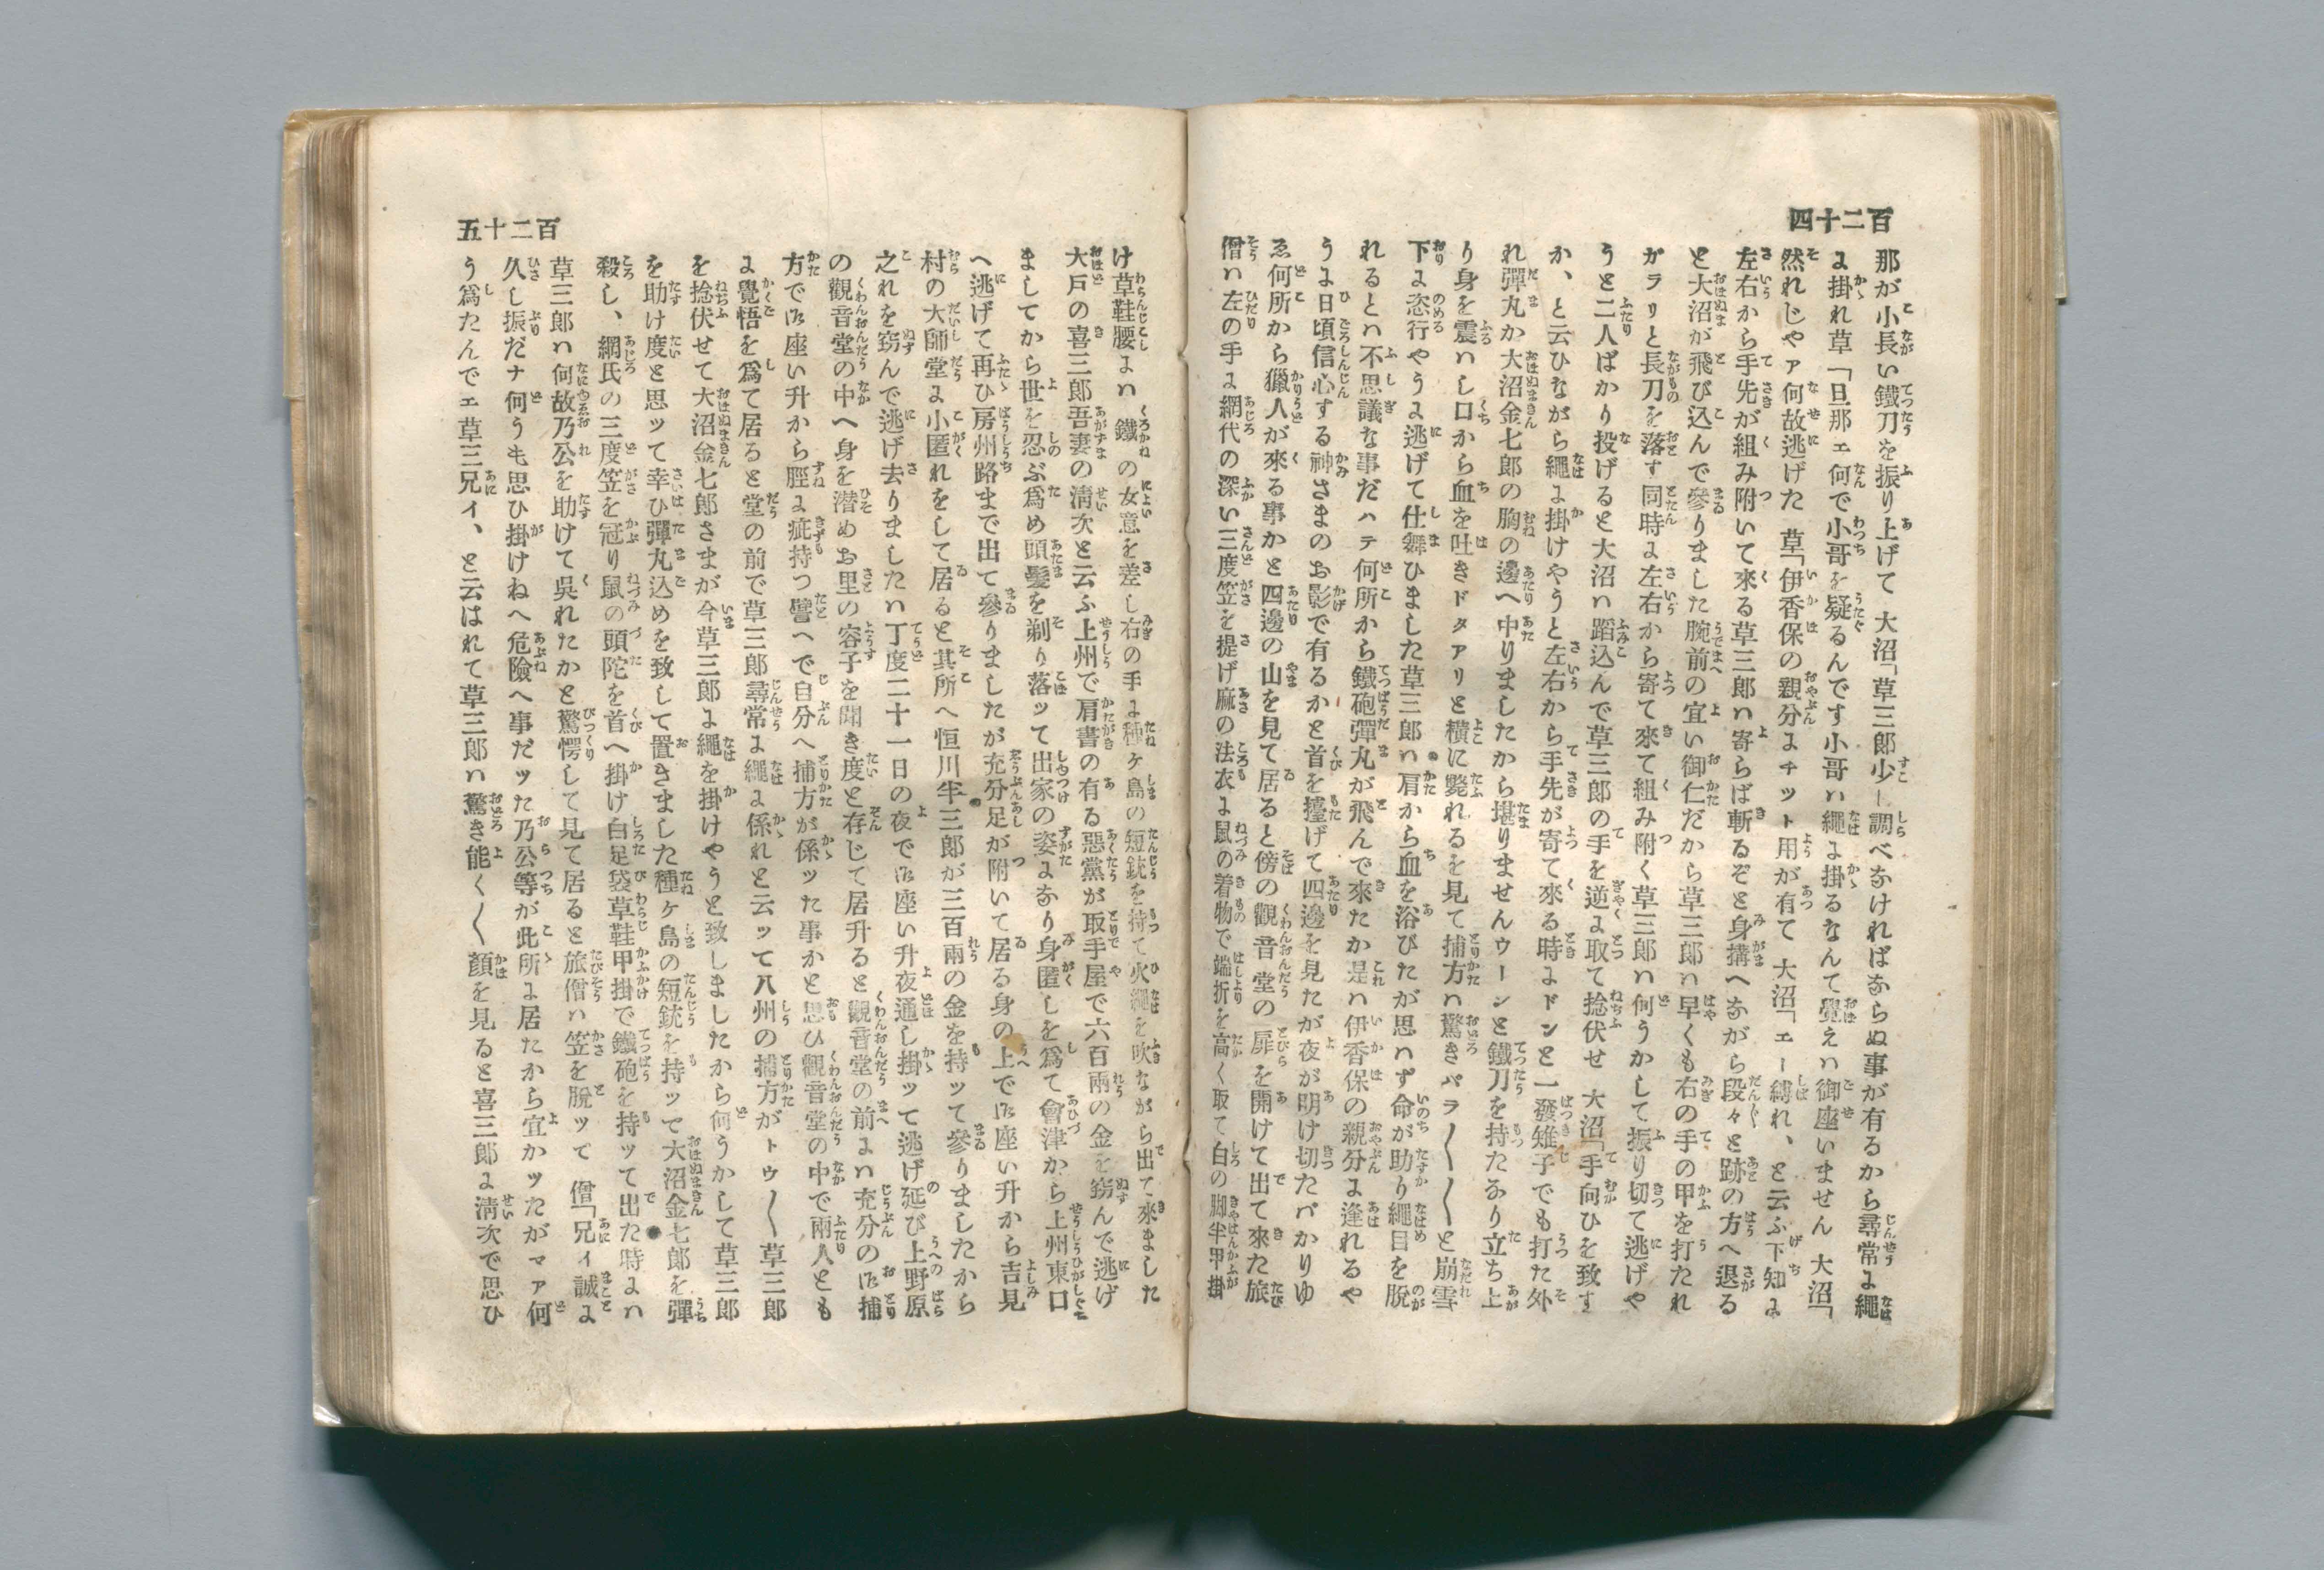 百二十四
那が小長い鐵刀を振り上げて 大沼「草三郎少し調べなければならぬ事が有るから尋常に繩
に掛れ草「旦那エ何で小哥を疑るんです小哥ハ繩に掛るなんて覺えハ御座いません 大沼「
然れじやァ何故逃げた 草「伊香保の親分にチット用が有て 大沼「エー縛れ、と云ふ下知に
左右から手先が組み附いて來る草三郎ハ寄らば斬るぞと身搆へながら段々と跡の方へ退る
と大沼が飛び込んで參りました腕前の宜い御仁だから草三郎ハ早くも右の手の甲を打たれ
ガラリと長刀を落す同時に左右から寄て來て組み附く草三郎ハ何うかして振り切て逃げや
うと二人ばかり投げると大沼ハ蹈込んで草三郎の手を逆に取て捻伏せ 大沼「手向ひを致す
か、と云ひながら繩に掛けやうと左右から手先が寄て來る時にドンと一發雉子でも打た外
れ彈丸か大沼金七郎の胸の邊へ中りましたから堪りませんウーンと鐵刀を持たなり立ち上
り身を震ハし口から血を吐きドタアリと横に斃れるを見て捕方ハ驚きバラ〱〱と崩雪
下に恣行やうに逃げて仕舞ひました草三郎ハ肩から血を浴びたが思ハず命が助り繩目を脱
れるとハ不思議な事だハテ何所から鐵砲彈丸が飛んで來たか是ハ伊香保の親分に逢れるや
うに日頃信心する神さまのお影で有るかと首を擡げて四邊を見たが夜が明け切たバかりゆ
ゑ何所から獵人が來る事かと四邊の山を見て居ると傍の觀音堂の扉を開けて出て來た旅
僧ハ左の手に網代の深い三度笠を提げ麻の法衣に鼠の着物で端折を高く取て白の脚半甲掛
百二十五
け草鞋腰にハ鐵の女意を差し右の手に種ヶ島の短銃を持て火繩を吹ながら出て來ました
大戸の喜三郎吾妻の淸次と云ふ上州で肩書の有る惡黨が取手屋で六百兩の金を窃んで逃げ
ましてから世を忍ぶ爲め頭髮を剃り落ッて出家の姿になり身匿しを爲て會津から上州東口
へ逃げて再ひ房州路まで出て參りましたが充分足が附いて居る身の上で御座い升から吉見
村の大師堂に小匿れをして居ると其所へ恒川半三郎が三百兩の金を持ッて參りましたから
之れを窃んで逃げ去りましたハ丁度二十一日の夜で御座い升夜通し掛ッて逃げ延び上野原
の觀音堂の中へ身を潜めお里の容子を聞き度と存じて居升ると觀音堂の前にハ充分の御捕
方で御座い升から脛に疵持つ譬へで自分へ捕方が係ッた事かと思ひ觀音堂の中で兩人とも
に覺悟を爲て居ると堂の前で草三郎尋常に繩に係れと云ッて八州の捕方がトウ〱草三郎
を捻伏せて大沼金七郎さまが今草三郎に繩を掛けやうと致しましたから何うかして草三郎
を助け度と思ッて幸ひ彈丸込めを致して置きました種ヶ島の短銃を持ッて大沼金七郎を彈
殺し、網氏の三度笠を冠り鼠の頭陀を首へ掛け白足袋草鞋甲掛で鐵砲を持ッて出た時にハ
草三郎ハ何故乃公を助けて呉れたかと驚愕して見て居ると旅僧ハ笠を脱ッて 僧「兄ィ誠に
久し振だナ何うも思ひ掛けねへ危險へ事だッた乃公等が此所に居たから宜かッたがマァ何
う爲たんでエ草三兄イ、と云はれて草三郎ハ驚き能く〱顏を見ると喜三郎に淸次で思ひ